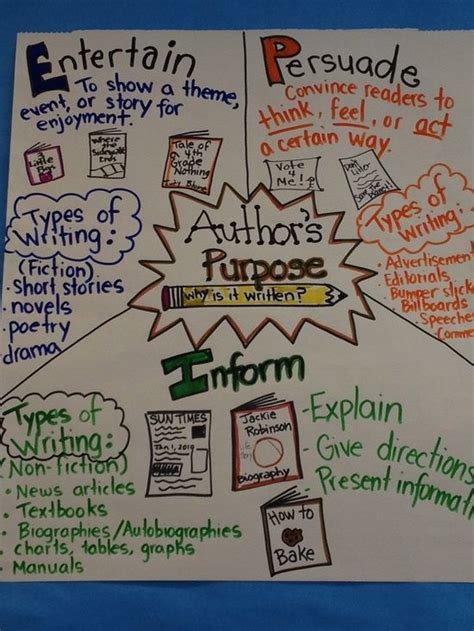 Entertain
To show a theme,
event, or story for
enjoyment.
Little
Where the
Sidewalk
Ends
Tale of
4th
Grade
Nothing
Types of
Writing:
(Fiction)
• Short stories
• novels
• poetry
• drama
Persuade
Convince readers to
think, feel, or act
a certain way.
Vote
4
Me!
Don't
Litter
Types of
Writing:
• Advertisement
• Editorials
• Bumper stick
• Billboards
• Speeche
• Comme
Author's
Purpose
why is it written?
Inform
Types of
Writing:
(Non-fiction)
• News articles
• Textbooks
• Biographies/Autobiographies
• charts, tables, graphs
• Manuals
SUN TIMES
Jan 1, 2010
Jackie
Robinson
biography
How to
Bake
- Explain
- Give directions
- Present informati